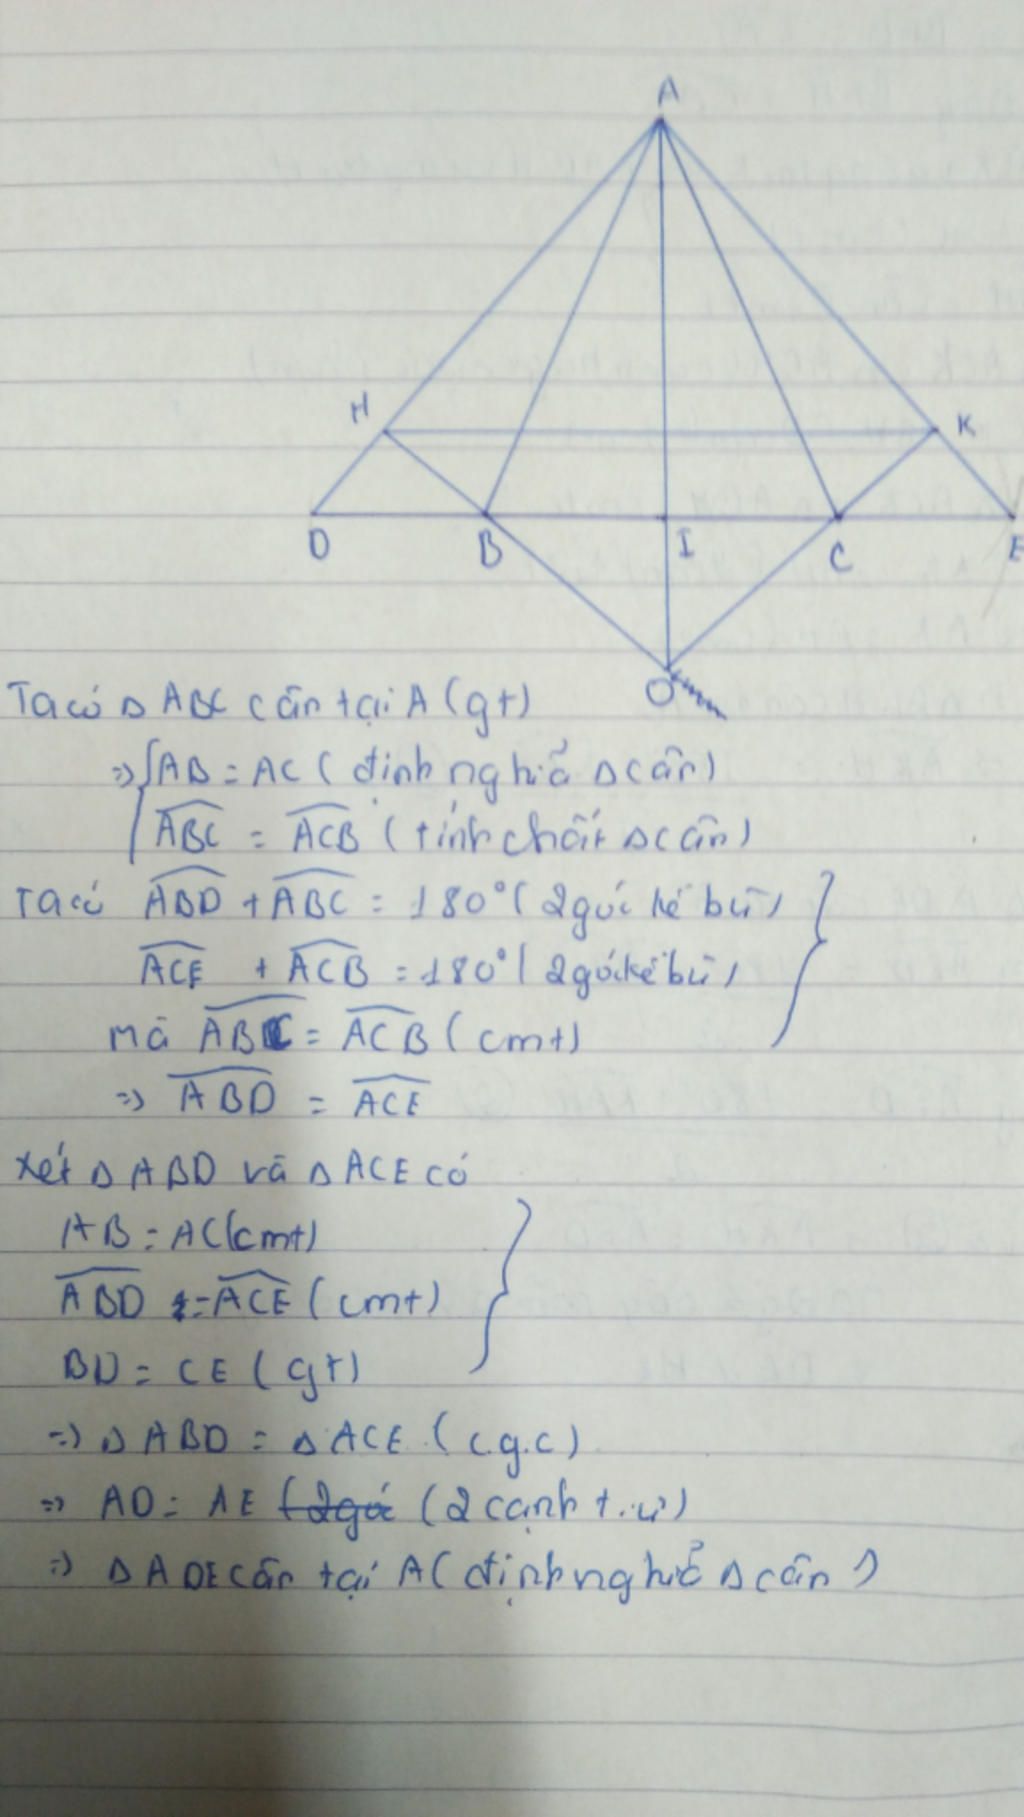 A
H
K
D
B
I
C
E
O
Ta có Δ ABC cân tại A (gt)
=> { AB = AC ( định nghiã Δ cân)
ABC = ACB ( tính chất Δ cân)
Ta có ABD + ABC = 180° ( 2 góc kề bù)
ACE + ACB = 180° ( 2 góc kề bù)
mà ABC = ACB ( cmt)
=> ABD = ACE
xét Δ ABD và Δ ACE có
AB = AC (cmt)
ABD = ACE ( cmt)
BD = CE ( gt)
=> Δ ABD = Δ ACE ( c.g.c)
=> AD = AE (2 góc (2 cạnh t.ư)
=> Δ ADE cân tại A ( định nghiã Δ cân )